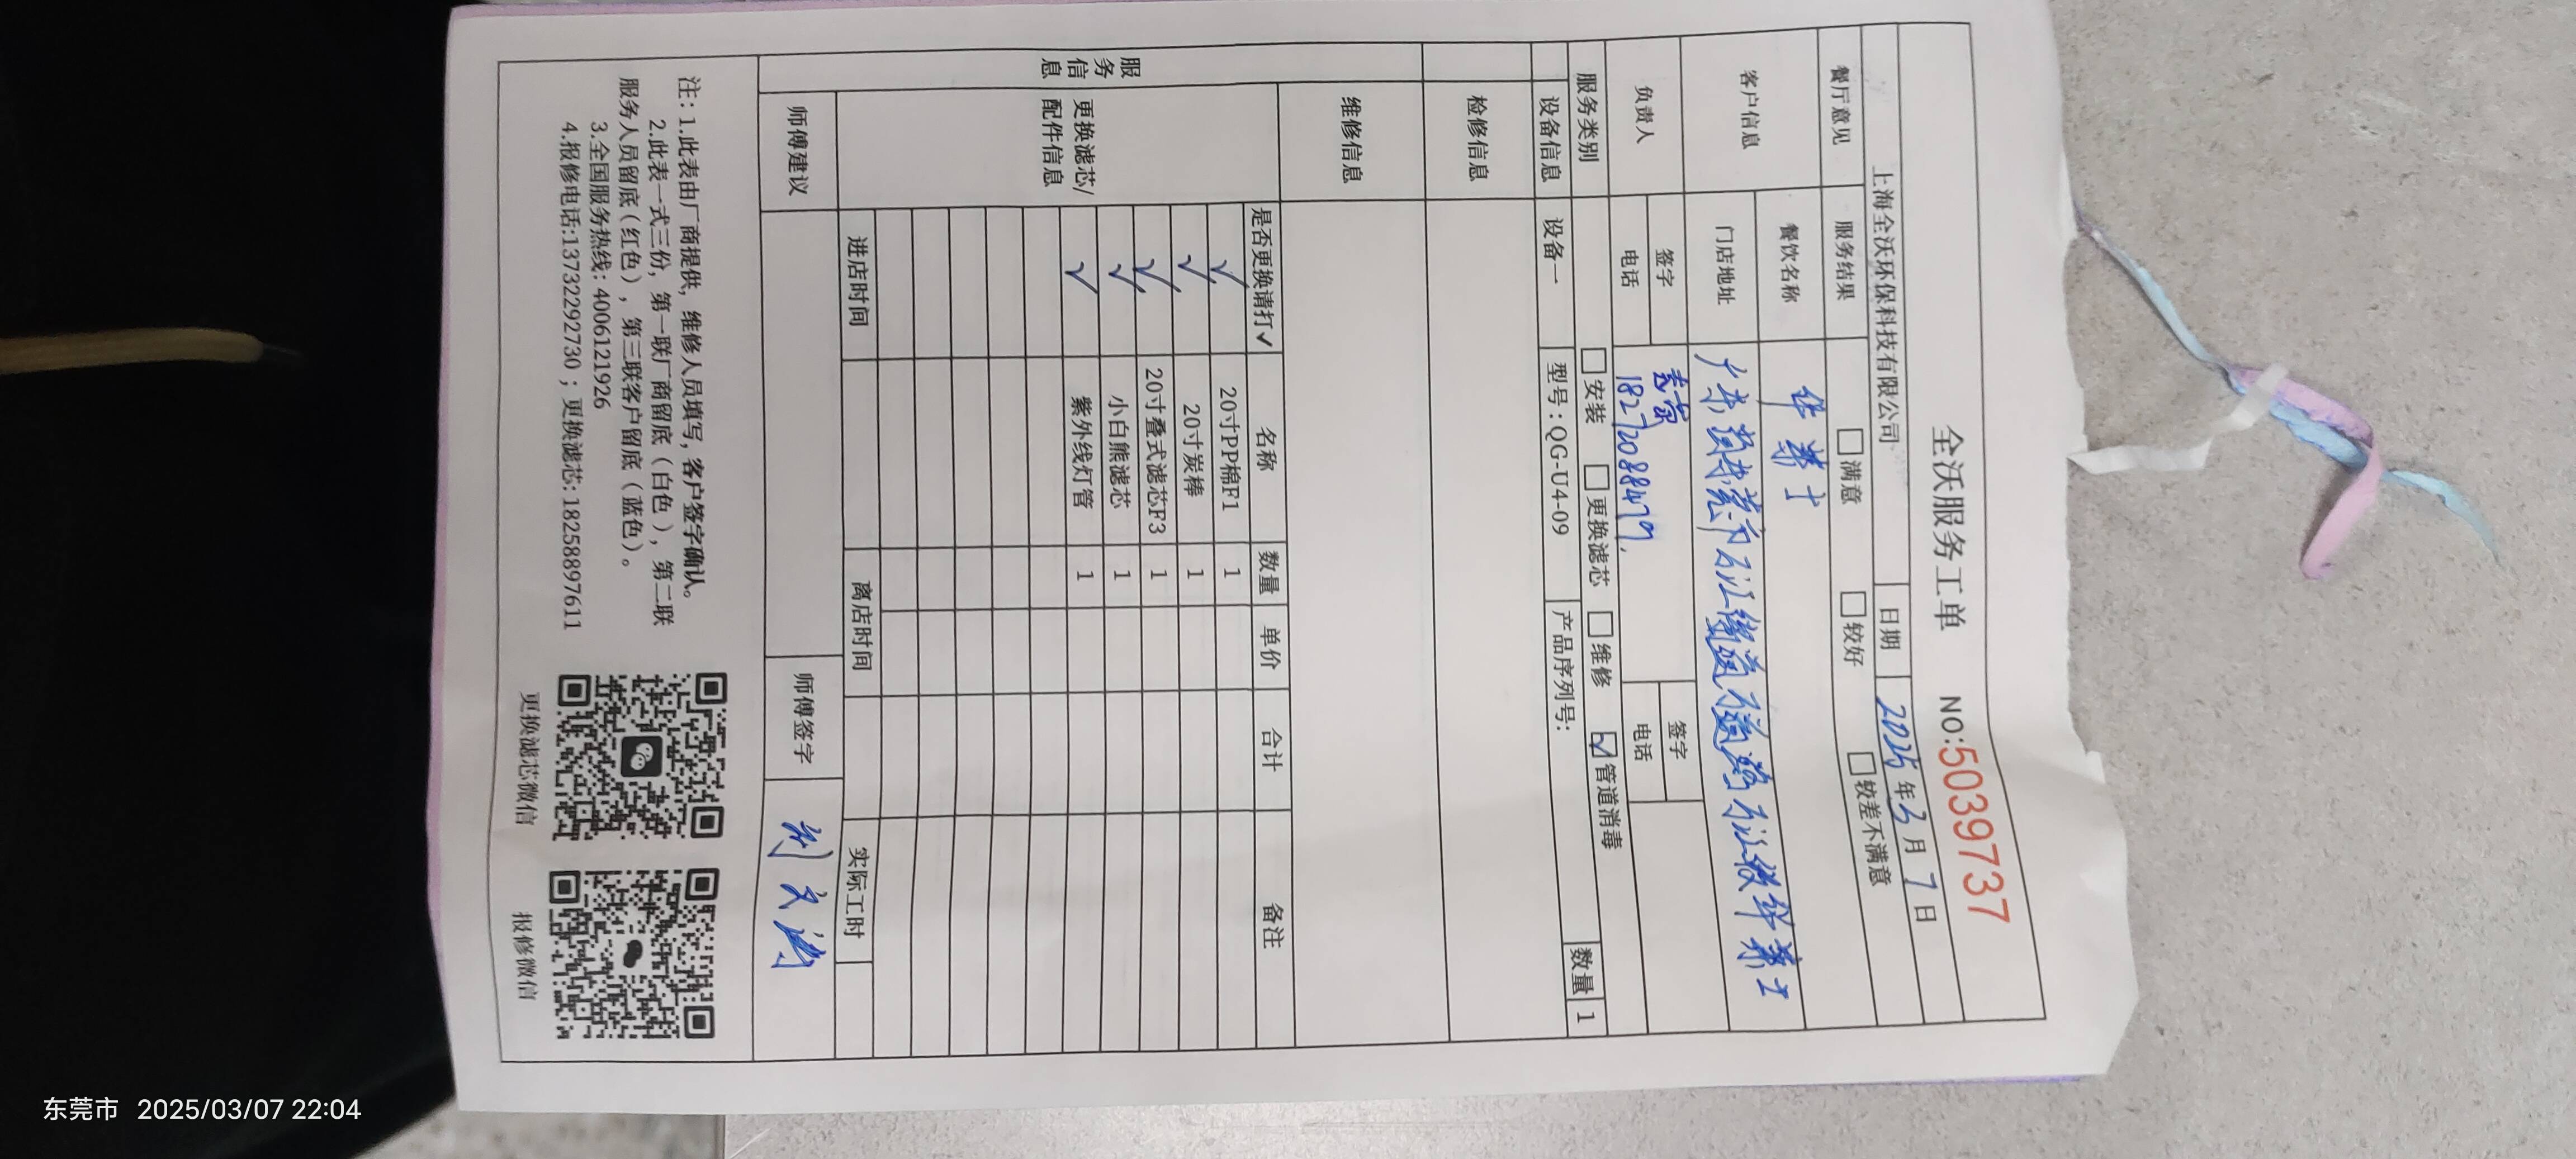 全沃服务工单 NO:5039737
上海全沃环保科技有限公司 日期 2025年3月7日
餐厅意见 服务结果 □满意 □较好 □较差不满意
客户信息 餐饮名称 华莱士
门店地址 广东 东莞市石江
负责人 签字 签字
电话 18272088479. 电话
服务类别 □安装 □更换滤芯 □维修 ☑管道消毒
设备信息 设备一 型号:QG-U4-09 产品序列号: 数量 1
检修信息
维修信息
服务信息
更换滤芯/配件信息
是否更换请打✓ 名称 数量 单价 合计 备注
✓ 20寸PP棉F1 1
✓ 20寸炭棒 1
✓ 20寸叠式滤芯F3 1
✓ 小白熊滤芯 1
✓ 紫外线灯管 1
进店时间 离店时间 实际工时
师傅建议 师傅签字 文涛
注: 1.此表由厂商提供, 维修人员填写, 客户签字确认。
2.此表一式三份, 第一联厂商留底(白色), 第二联
服务人员留底(红色), 第三联客户留底(蓝色)。
3.全国服务热线: 4006121926
4.报修电话:13732292730 ; 更换滤芯: 18258897611
更换滤芯微信
报修微信
东莞市 2025/03/07 22:04